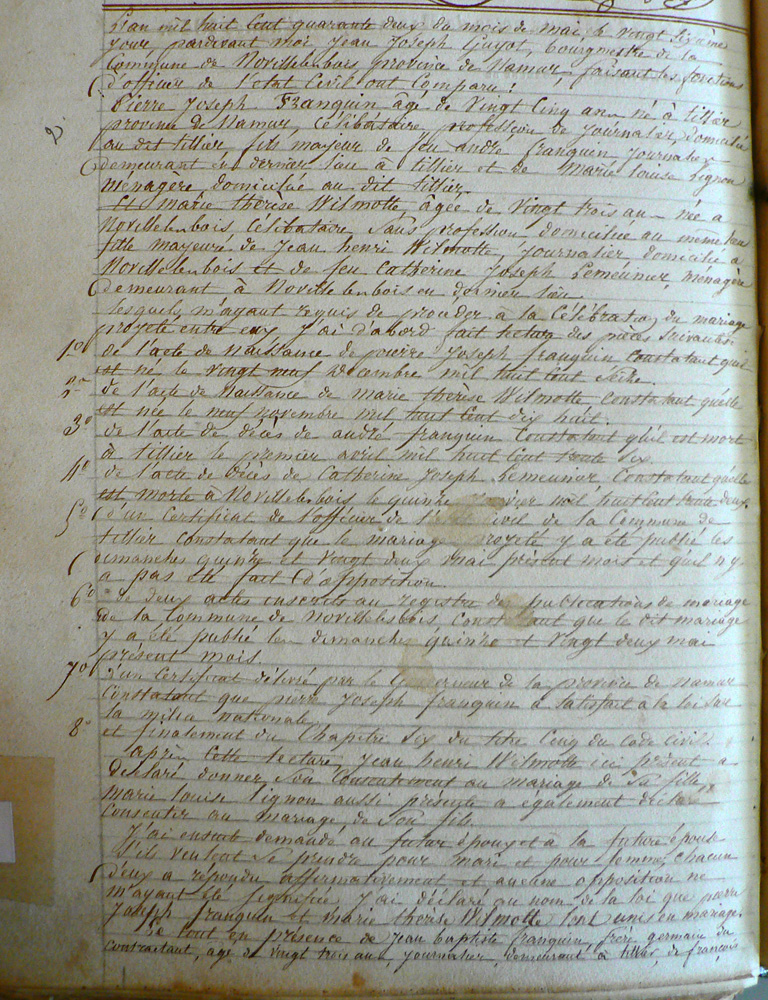 L'an mil huit cent quarante deux du mois de mai, le vingt sixième
jour pardevant moi Jean Joseph Guyot, bourgmestre de la
Commune de Novillelesbois province de Namur, faisant les fonctions
d'officier de l'état Civil ont Comparu:
Pierre Joseph Franquin âgé de vingt Cinq ans né à tillier
province de Namur, Célibataire, profession de journalier, domicilié
au dit tillier, fils majeur de feu andré franquin journalier
demeurant en dernier lieu à tillier et de Marie louise Lignon
ménagère domiciliée au dit tillier
2.
Et marie thérèse Wilmotte âgée de vingt trois ans née à
Novillelesbois Célibataire, sans profession domiciliée au même lieu
fille majeure de Jean henri Wilmotte, journalier domicilié à
Novillelesbois et de feu Catherine Joseph Lemeunier ménagère
demeurant à Novillelesbois en dernier lieu.
lesquels m'ayant requis de procéder à la Célébration du mariage
projeté entre eux j'ai d'abord fait lecture des pièces suivantes
1o de l'acte de naissance de pierre Joseph franquin constatant qu'il
est né le vingt neuf décembre mil huit cent seize.
2o de l'acte de Naissance de marie thérèse Wilmotte constatant qu'elle
est née le neuf novembre mil huit cent dix huit.
3o de l'acte de décès de andré franquin Constatant qu'il est mort
à tillier le premier avril mil huit Cent trente six
4o de l'acte de décès de Catherine Joseph Lemeunier Constatant qu'elle
est morte à Novillelesbois le quinze janvier mil huit Cent trente deux.
5o d'un Certificat de l'officier de l'état Civil de la Commune de
tillier Constatant que le mariage projeté y a été publié les
dimanches quinze et vingt deux mai présent mois et qu'il n'y
a pas été fait d'opposition.
6o de deux actes inscrits au registre des publications de mariage
de la Commune de Novillelesbois Constatant que le dit mariage
y a été publié les dimanches quinze et vingt deux mai
présent mois.
7o d'un Certificat délivré par le Gouverneur de la province de namur
Constatant que pierre Joseph franquin a satisfait à la loi sur
la milice nationale,
8o et finalement du Chapitre six du titre Cinq du Code Civil.
après cette lecture, Jean henri Wilmotte ici présent a
déclaré donner son Consentement au mariage de sa fille,
marie louise lignon aussi présente a également déclaré
Consentir au mariage de son fils.
J'ai ensuite demandé au futur époux et à la future épouse
s'ils veulent se prendre pour mari et pour femme, chacun
d'eux a répondu affirmativement et aucune opposition ne
m'ayant été signifiée, j'ai déclaré au nom de la loi que pierre
Joseph franquin et marie thérèse Wilmotte sont unis en mariage.
De tout en présence de Jean baptiste franquin, frère germain du
Contractant, âgé de vingt trois ans, journalier, demeurant à tillier, de françois